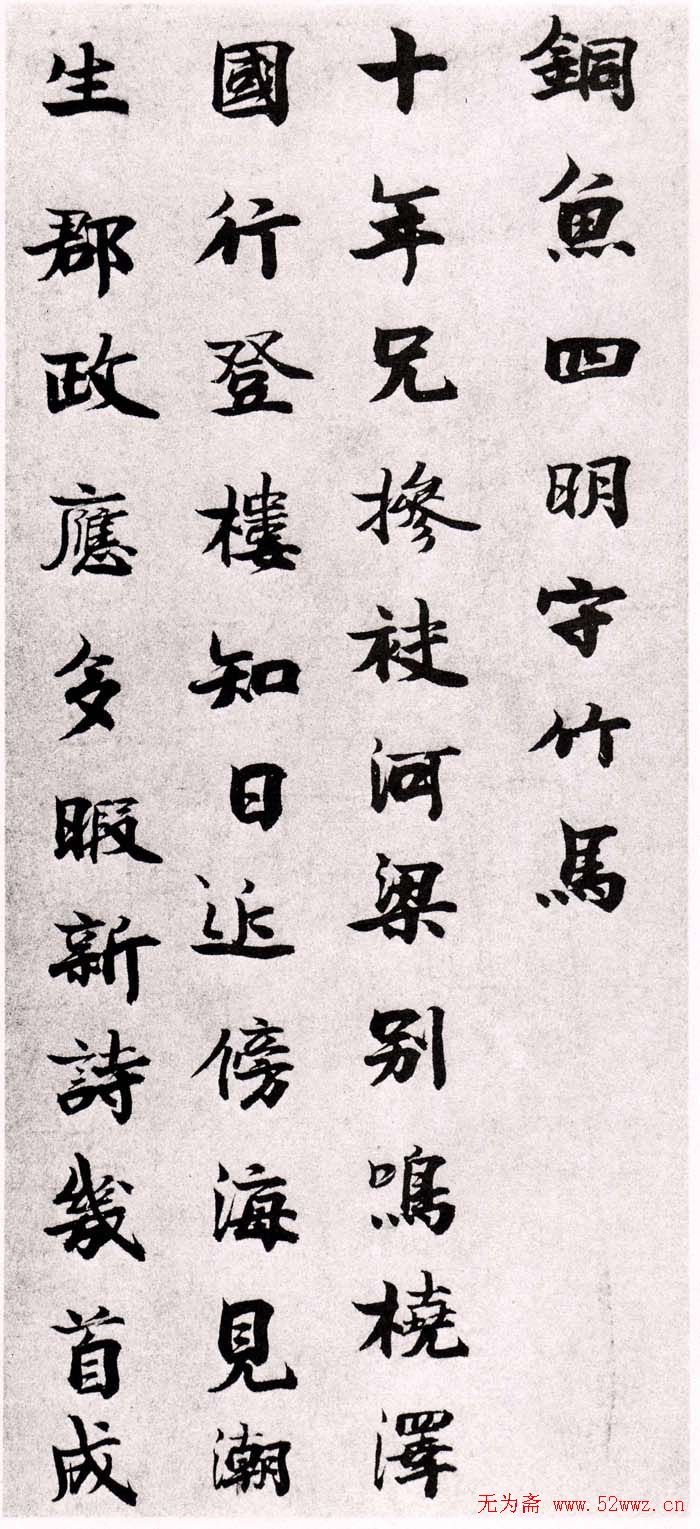 銅魚四明守竹馬
十年兄摻袂河梁別鳴橈澤
國行登樓知日近傍海見潮
生郡政應多暇新詩幾首成
无为斋 www.52wwz.cn